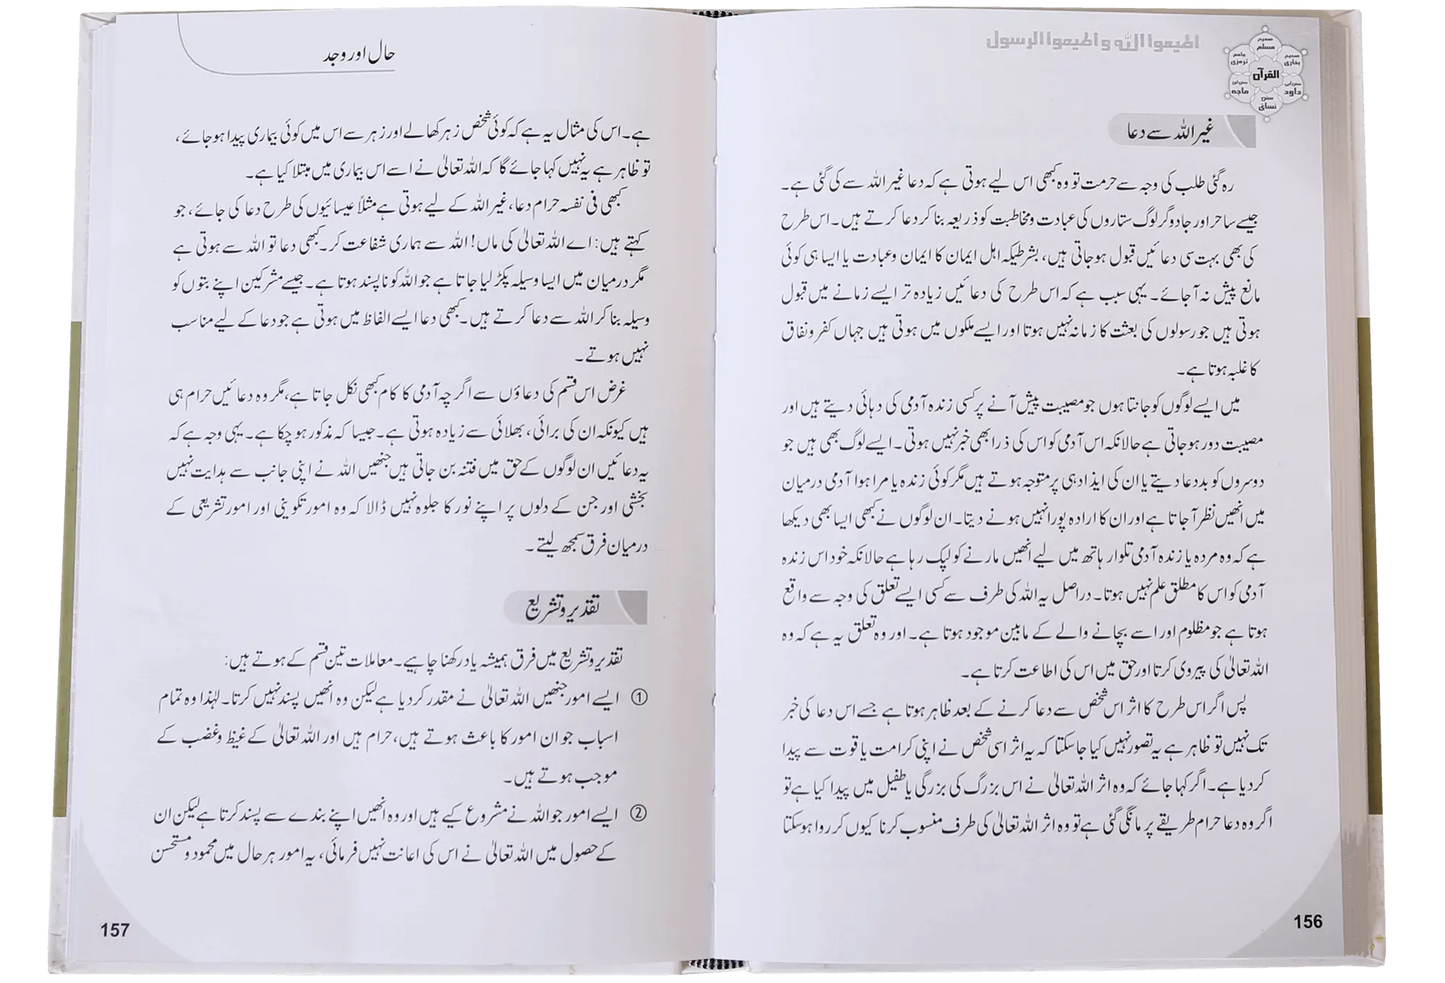 اطیعوا اللہ و اطیعوا الرسول
صحیح مسلم
صحیح بخاری
جامع ترمذی
القرآن
سنن ابی داود
سنن ابن ماجہ
سنن نسائی
غیر اللہ سے دعا
رہ گئی طلب کی وجہ سے حرمت تو وہ کبھی اس لیے ہوتی ہے کہ دعا غیر اللہ سے کی گئی ہے۔
جیسے ساحر اور جادوگر لوگ ستاروں کی عبادت ومخاطبت کو ذریعہ بنا کر دعا کرتے ہیں۔ اس طرح
کی بھی بہت سی دعائیں قبول ہوجاتی ہیں، بشرطیکہ اہل ایمان کا ایمان وعبادت یا ایسا ہی کوئی
مانع پیش نہ آجائے۔ یہی سبب ہے کہ اس طرح کی دعائیں زیادہ تر ایسے زمانے میں قبول
ہوتی ہیں جو رسولوں کی بعثت کا زمانہ نہیں ہوتا اور ایسے ملکوں میں ہوتی ہیں جہاں کفر ونفاق
کا غلبہ ہوتا ہے۔
میں ایسے لوگوں کو جانتا ہوں جو مصیبت پیش آنے پر کسی زندہ آدمی کی دہائی دیتے ہیں اور
مصیبت دور ہوجاتی ہے حالانکہ اس آدمی کو اس کی ذرا بھی خبر نہیں ہوتی۔ ایسے لوگ بھی ہیں جو
دوسروں کو بددعا دیتے یا ان کی ایذا دہی پر متوجہ ہوتے ہیں مگر کوئی زندہ یا مرا ہوا آدمی درمیان
میں انھیں نظر آجاتا ہے اور ان کا ارادہ پورا نہیں ہونے دیتا۔ ان لوگوں نے کبھی ایسا بھی دیکھا
ہے کہ وہ مردہ یا زندہ آدمی تلوار ہاتھ میں لیے انھیں مارنے کو لپک رہا ہے حالانکہ خود اس زندہ
آدمی کو اس کا مطلق علم نہیں ہوتا۔ دراصل یہ اللہ کی طرف سے کسی ایسے تعلق کی وجہ سے واقع
ہوتا ہے جو مظلوم اور اسے بچانے والے کے مابین موجود ہوتا ہے۔ اور وہ تعلق یہ ہے کہ وہ
اللہ تعالیٰ کی پیروی کرتا اور حق میں اس کی اطاعت کرتا ہے۔
پس اگر اس طرح کا اثر اس شخص سے دعا کرنے کے بعد ظاہر ہوتا ہے جسے اس دعا کی خبر
تک نہیں تو ظاہر ہے یہ تصور نہیں کیا جاسکتا کہ یہ اثر اسی شخص نے اپنی کرامت یا قوت سے پیدا
کردیا ہے۔ اگر کہا جائے کہ وہ اثر اللہ تعالیٰ نے اس بزرگ کی بزرگی یا طفیل میں پیدا کیا ہے تو
اگر وہ دعا حرام طریقے پر مانگی گئی ہے تو وہ اثر اللہ تعالیٰ کی طرف منسوب کرنا کیوں کر روا ہوسکتا
156
حال اور وجد
ہے۔ اس کی مثال یہ ہے کہ کوئی شخص زہر کھالے اور زہر سے اس میں کوئی بیماری پیدا ہوجائے،
تو ظاہر ہے یہ نہیں کہا جائے گا کہ اللہ تعالیٰ نے اسے اس بیماری میں مبتلا کیا ہے۔
کبھی فی نفسہ حرام دعا، غیر اللہ کے لیے ہوتی ہے مثلاً عیسائیوں کی طرح دعا کی جائے، جو
کہتے ہیں: اے اللہ تعالیٰ کی ماں! اللہ سے ہماری شفاعت کر۔ کبھی دعا تو اللہ سے ہوتی ہے
مگر درمیان میں ایسا وسیلہ پکڑ لیا جاتا ہے جو اللہ کو ناپسند ہوتا ہے۔ جیسے مشرکین اپنے بتوں کو
وسیلہ بنا کر اللہ سے دعا کرتے ہیں۔ کبھی دعا ایسے الفاظ میں ہوتی ہے جو دعا کے لیے مناسب
نہیں ہوتے۔
غرض اس قسم کی دعاؤں سے اگرچہ آدمی کا کام کبھی نکل جاتا ہے، مگر وہ دعائیں حرام ہی
ہیں کیونکہ ان کی برائی، بھلائی سے زیادہ ہوتی ہے۔ جیسا کہ مذکور ہو چکا ہے۔ یہی وجہ ہے کہ
یہ دعائیں ان لوگوں کے حق میں فتنہ بن جاتی ہیں جنھیں اللہ نے اپنی جانب سے ہدایت نہیں
بخشی اور جن کے دلوں پر اپنے نور کا جلوہ نہیں ڈالا کہ وہ امور تکوینی اور امور تشریعی کے
درمیان فرق سمجھ لیتے۔
تقدیر و تشریع
تقدیر وتشریع میں فرق ہمیشہ یاد رکھنا چاہیے۔ معاملات تین قسم کے ہوتے ہیں:
① ایسے امور جنھیں اللہ تعالیٰ نے مقدر کردیا ہے لیکن وہ انھیں پسند نہیں کرتا۔ لہٰذا وہ تمام
اسباب جو ان امور کا باعث ہوتے ہیں، حرام ہیں اور اللہ تعالیٰ کے غیظ وغضب کے
موجب ہوتے ہیں۔
② ایسے امور جو اللہ نے مشروع کیے ہیں اور وہ انھیں اپنے بندے سے پسند کرتا ہے لیکن ان
کے حصول میں اللہ تعالیٰ نے اس کی اعانت نہیں فرمائی، یہ امور ہر حال میں محمود و مستحسن
157